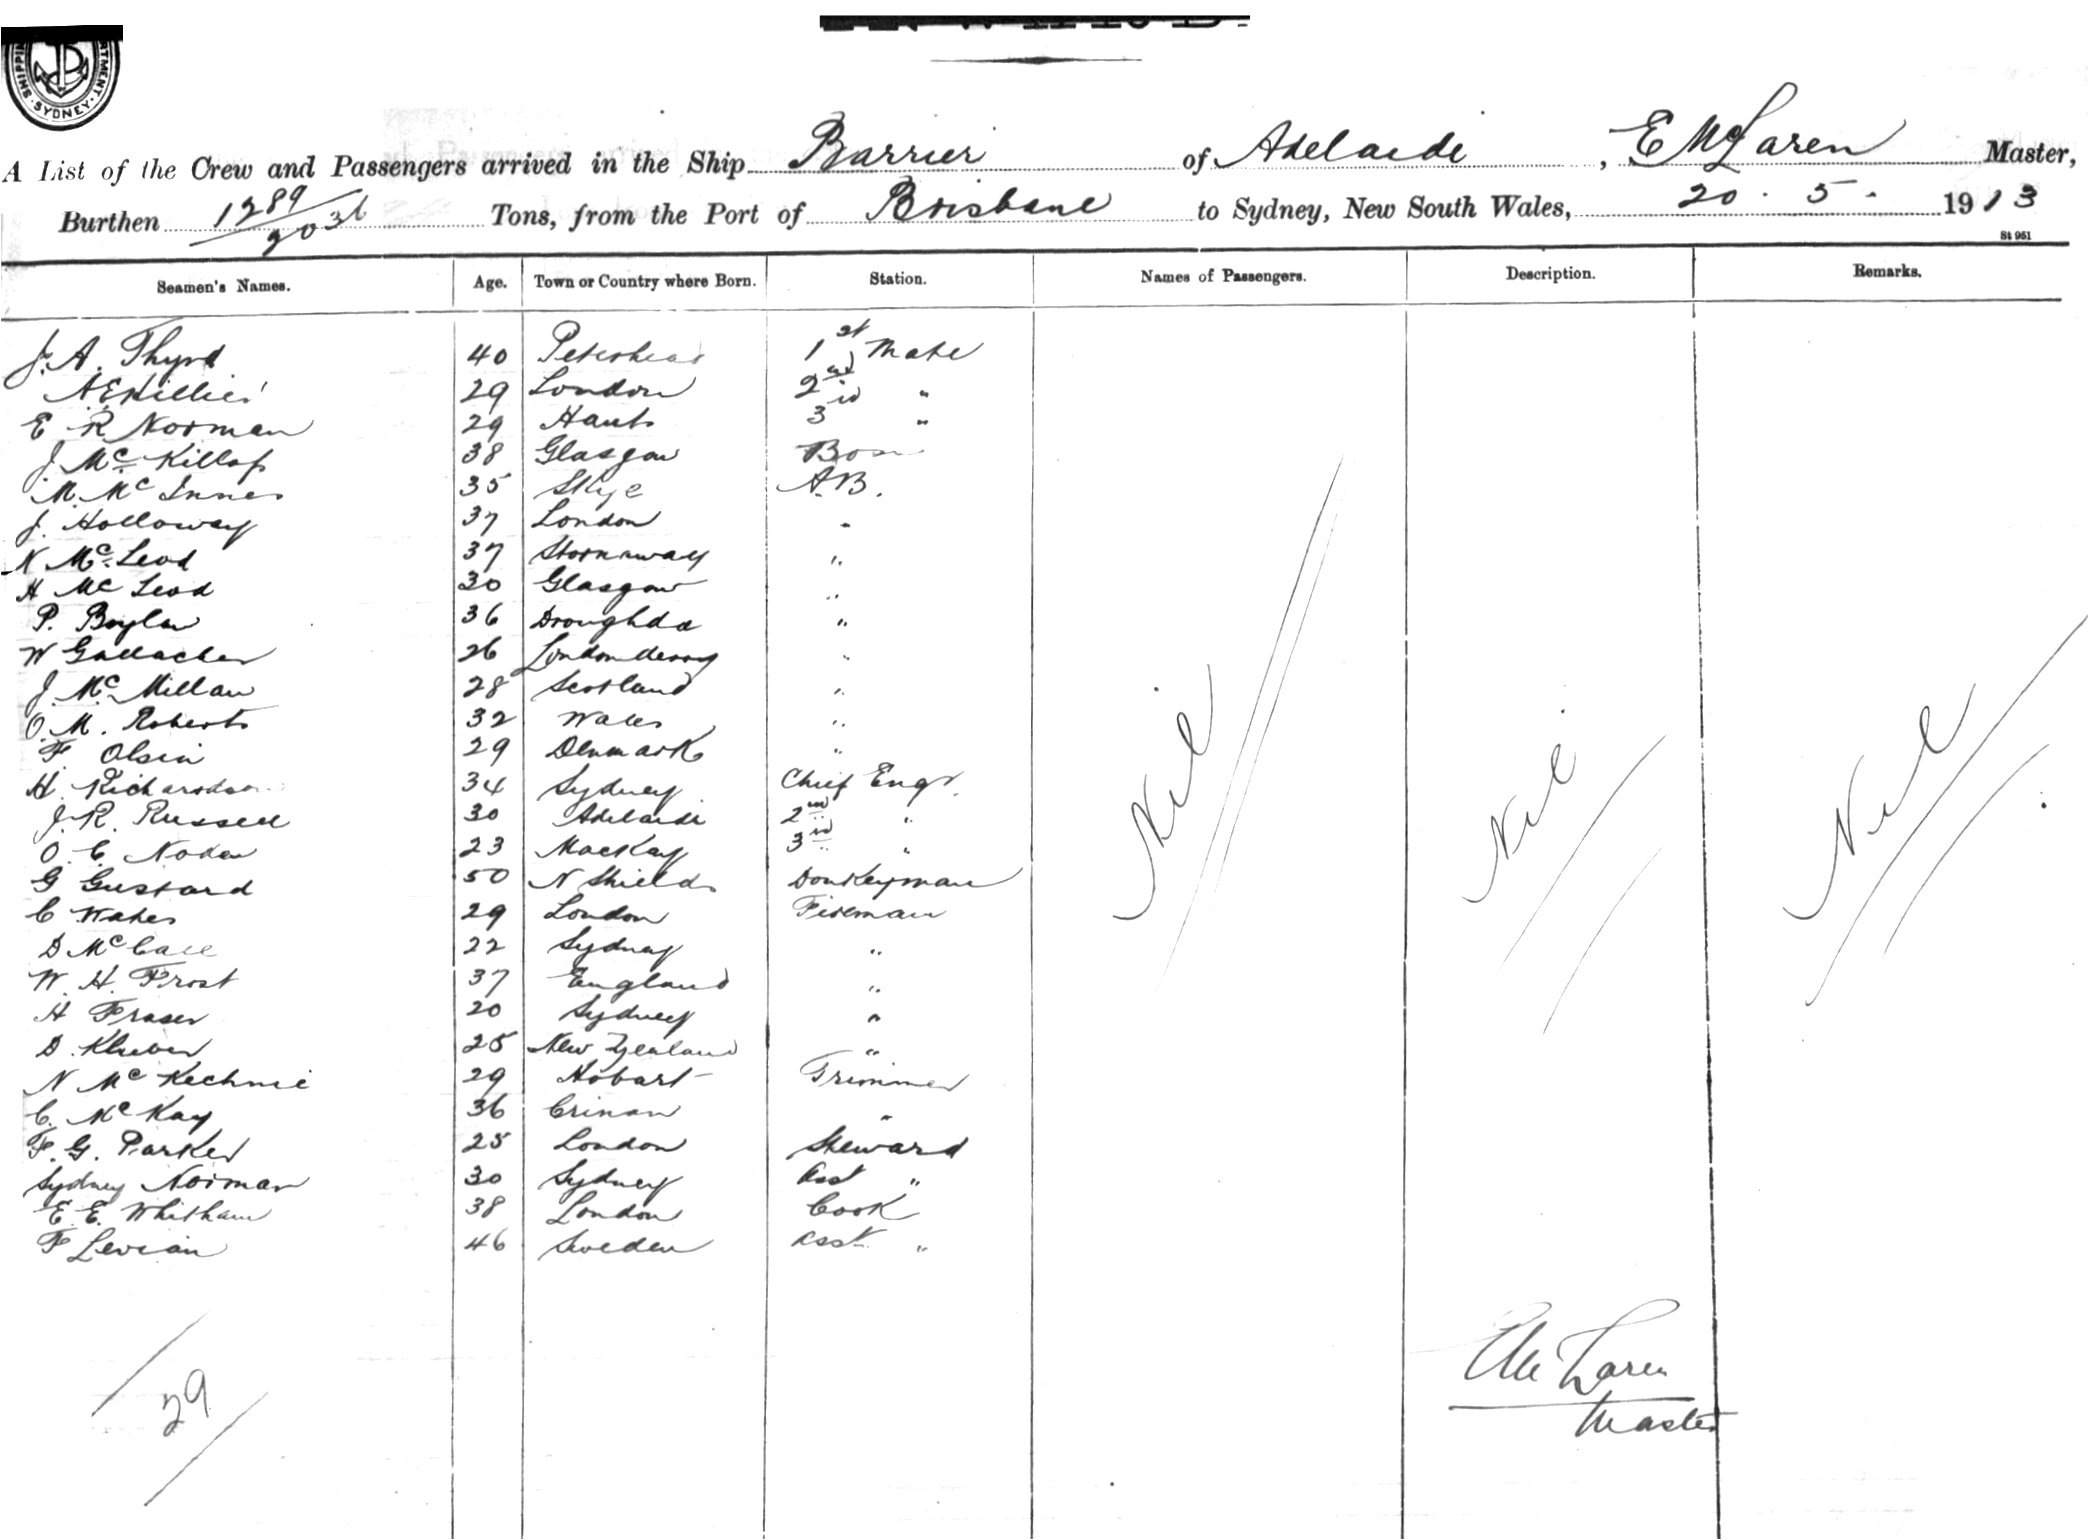 SHIPPING DEPARTMENT. SYDNEY.
A List of the Crew and Passengers arrived in the Ship Barrier of Adelaide, E McLaren Master,
Burthen 1289/2036 Tons, from the Port of Brisbane to Sydney, New South Wales, 20 . 5 . 1913
St 951
Seamen's Names. Age. Town or Country where Born. Station. Names of Passengers. Description. Remarks.
J. A. Thyrd 40 Peterhead 1st Mate
A E Hillier 29 London 2nd "
E R Norman 29 Hants 3rd "
J. Mc Killop 38 Glasgow Bosn
M. Mc Innes 35 Skye A.B.
J. Holloway 37 London "
N Mc Leod 37 Stornaway "
H Mc Leod 30 Glasgow "
P. Boylan 36 Droughda "
W Gallacher 26 Londonderry "
J. Mc Millan 28 Scotland "
O. M. Roberts 32 Wales "
F. Olsen 29 Denmark "
H. Richardson 34 Sydney Chief Engr.
J. R. Russell 30 Adelaide 2nd "
O. C. Noden 23 Mackay 3rd "
G Gustard 50 N Shields Donkeyman
C Wakes 29 London Fireman
D Mc Call 22 Sydney "
W. H. Frost 37 England "
H Fraser 20 Sydney "
D. 25 New Zealand "
N Mc Kechnie 29 Hobart Trimmer
C. Mc Kay 36 Crinan "
F. G. Parker 25 London Steward
Sydney Norman 30 Sydney Asst "
E. E. Whitham 38 London Cook
F 46 Sweden Asst "
Nil Nil Nil
E Mc Laren
Master
29